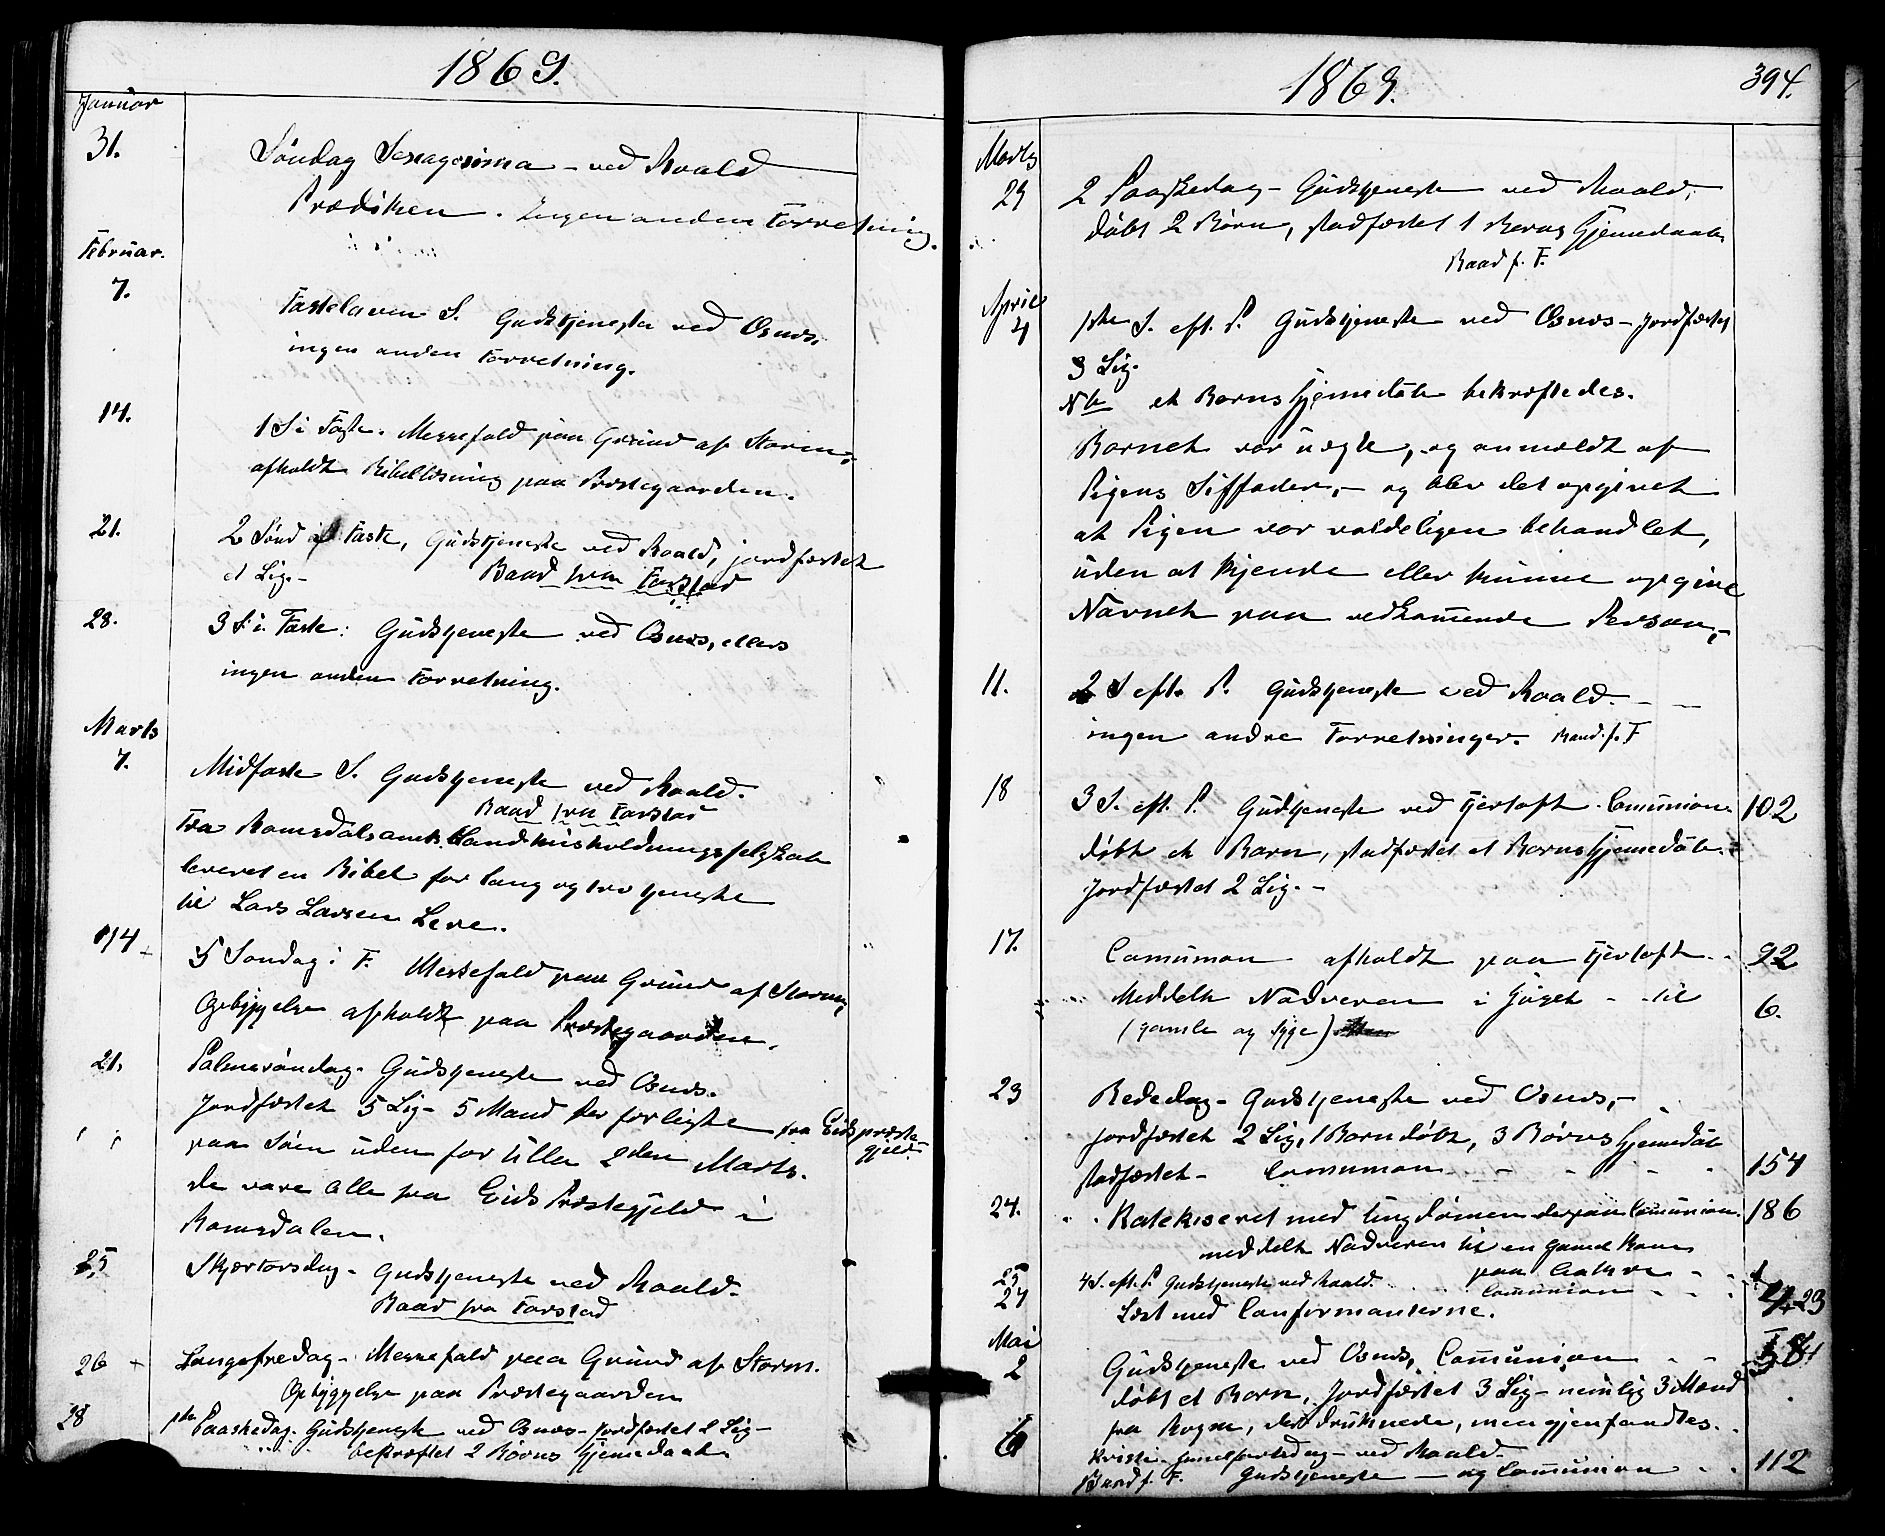 1869.
Januar
31. Söndag Sexagesima - ved Roald
Prædiken. Ingen anden Forretning.
Februar.
7. Fastelavens S. Gudstjeneste ved Osnes,
ingen anden Forretning.
14. 1 S i Faste. Messefald paa Grund af Storm,
afholdt Bibellæsning paa Præstegaarden.
21. 2 Sönd i Faste, Gudstjeneste ved Roald, jordfæstet
et Lig. - Baad fra Farstad
28. 3 S. i. Faste: Gudstjeneste ved Osnes, ellers
ingen anden Forretning.
Marts
7. Midfaste S. Gudstjeneste ved Roald.
Baad fra Farstad
Fra Romsdalsamts Landhusholdningsselskab
leveret en Bibel for lang og tro tjeneste
til Lars Larsen
14 5 Söndag i F. Messefald paa Grund af Storm,
Opbyggelse afholdt paa Præstegaarden.
21. Palmesöndag. Gudstjeneste ved Osnes.
Jordfæstet 5 Lig - 5 Mand der forliste fra Eids præste-
gjeld
paa Söen uden for Ulla 2den Marts.
de vare alle fra Eids Præstegjeld i
Romsdalen.
25 Skjærtorsdag - Gudstjeneste ved Roald.
Baad fra Farstad
26 + Langefredag - Messefald paa Grund af Storm.
Opbyggelse paa Præstegaarden
28 1ste Paaskedag. Gudstjeneste ved Osnes - jordfæstet 2 Lig -
bekræftet 2 Börns Hjemedaab
1869. 394.
Marts
29 2 Paaskedag - Gudstjeneste ved Roald,
döbt 2 Börn, stadfæstet 1 Barns Hjemedaab
Baad f. F.
April
4 1ste S. eft. P. Gudstjeneste ved Osnes - Jordfæstet
3 Lig.
Nb et Barns Hjemedåb bekræftedes.
Barnet var uægte, og anmeldt af
Pigens Stiffader, - og blev det opgivet
at Pigen var voldeligen behandlet,
uden at kjende eller kunne opgive
Navnet paa vedkommende Person, -
11. 2 S eft. P. Gudstjeneste ved Roald. - -
ingen andre Forretninger. Baad f. F
18 3 S. eft. P. Gudtjeneste ved Fjertoft. Comunion. 102
döbt et Barn, stadfæstet et Barns Hjemedåb.
Jordfæstet 2 Lig. -
17. Comunion afholdt paa Fjertoft. . 92
Meddelt Nadveren i Huset - til 6.
(gamle og syge)
23 Bededag - Gudstjeneste ved Osnes, -
jordfæstet 2 Lig, 1 Barn döbt, 3 Börns Hjemedåb
stadfæstet - Comunion - - - - 154
24. Katekiseret med Ungdomen Comunion. 186
meddelt Nadveren til en gamel Kone
paa
25 4 S. eft. P. Gudstjeneste ved Roald. Comunion
27 Læst med Confirmanterne.
Mai
2 Gudstjeneste ved Osnes, Comunion
döbt et Barn, Jordfæstet 3 Lig - nemlig 3 Mænd
fra Rogne, der druknede, men gjenfandtes.
6 Kristi himelfartsdag - ved Roald
Baad f. F. Gudstjeneste - og Comunion 112